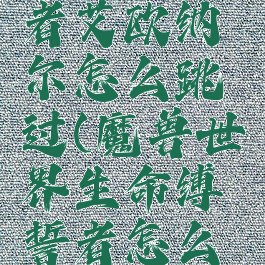 者艾欧纳
尔怎么跳
过(魔兽世
界生命缚
誓者怎么